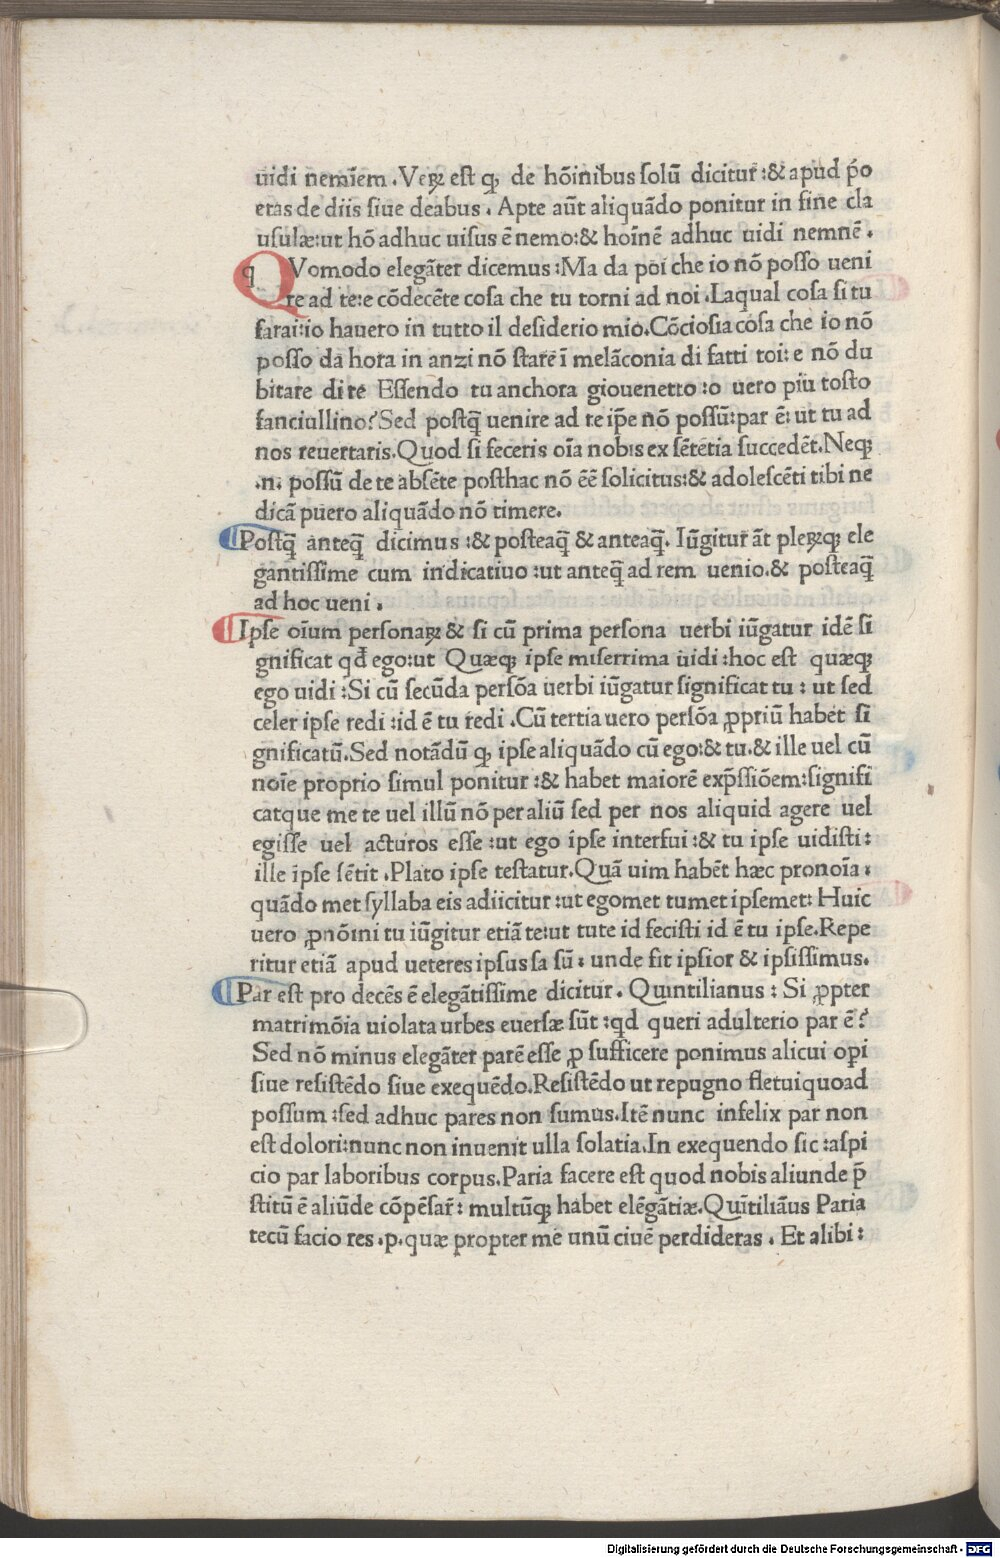 uidi nemīem .Veꝝ est ꝙ de hōinibus solū dicitur :& apud ṕo
etas de diis siue deabus . Apte aūt aliquādo ponitur in fine cla
usulæ:ut hō adhuc uisus ē nemo:& hoīnē adhuc uidi nemnē .
q QVomodo elegāter dicemus :Ma da poi che io nō posso ueni
re ad te:e cōdecēte cosa che tu torni ad noi .Laqual cosa si tu
farai:io hauero in tutto il desiderio mio.Cōciosia cosa che io nō
posso da hora in anzi nō stare ī melāconia di fatti toi: e nō du
bitare di te Essendo tu anchora giouenetto :o uero piu tosto
fanciullino? Sed postq̄ uenire ad te ip̄e nō possū:par ē: ut tu ad
nos reuertaris.Quod si feceris oīa nobis ex sētētia succedēt.Neqꝫ
.n. possū de te absēte posthac nō ēē solicitus:& adolescēti tibi ne
dicā puero aliquādo nō timere.
¶Postq̄ anteq̄ dicimus :& posteaq̄ & anteaq̄. Iūgitur āt pleꝝqꝫ ele
gantissime cum indicatiuo :ut anteq̄ ad rem uenio.& posteaq̄
ad hoc ueni .
¶Ipse oīum personaꝝ & si cū prima persona uerbi iūgatur idē si
gnificat qđ ego:ut Quæqꝫ ipse miserrima uidi :hoc est quæqꝫ
ego uidi :Si cū secūda persōa uerbi iūgatur significat tu : ut sed
celer ipse redi :id ē tu redi .Cū tertia uero persōa ꝓpriū habet si
gnificatū.Sed notādū ꝙ ipse aliquādo cū ego:& tu.& ille uel cū
noīe proprio simul ponitur :& habet maiorē exp̄ssiōem:signifi
catque me te uel illū nō per aliū sed per nos aliquid agere uel
egisse uel acturos esse :ut ego ipse interfui :& tu ipse uidisti :
ille ipse sētit .Plato ipse testatur.Quā uim habēt hæc pronoīa :
quādo met syllaba eis adiicitur :ut egomet tumet ipsemet: Huic
uero ꝓnōini tu iūgitur etiā te:ut tute id fecisti id ē tu ipse.Repe
ritur etiā apud ueteres ipsus sa sū : unde fit ipsior & ipsissimus.
¶Par est pro decēs ē elegātissime dicitur . Quintilianus : Si ꝓpter
matrimōia uiolata urbes euersæ sūt :qd queri adulterio par ē?
Sed nō minus elegāter parē esse ꝓ sufficere ponimus alicui op̄i
siue resistēdo siue exequēdo.Resistēdo ut repugno fletuiquoad
possum :sed adhuc pares non sumus.Itē nunc infelix par non
est dolori:nunc non inuenit ulla solatia.In exequendo sic :aspi
cio par laboribus corpus.Paria facere est quod nobis aliunde p̄
stitū ē aliūde cōpēsar̄ : multūqꝫ habet elēgātiæ.Quītiliāus Paria
tecū facio res .p.quæ propter me unū ciuē perdideras . Et alibi :
Digitalisierung gefördert durch die Deutsche Forschungsgemeinschaft - DFG